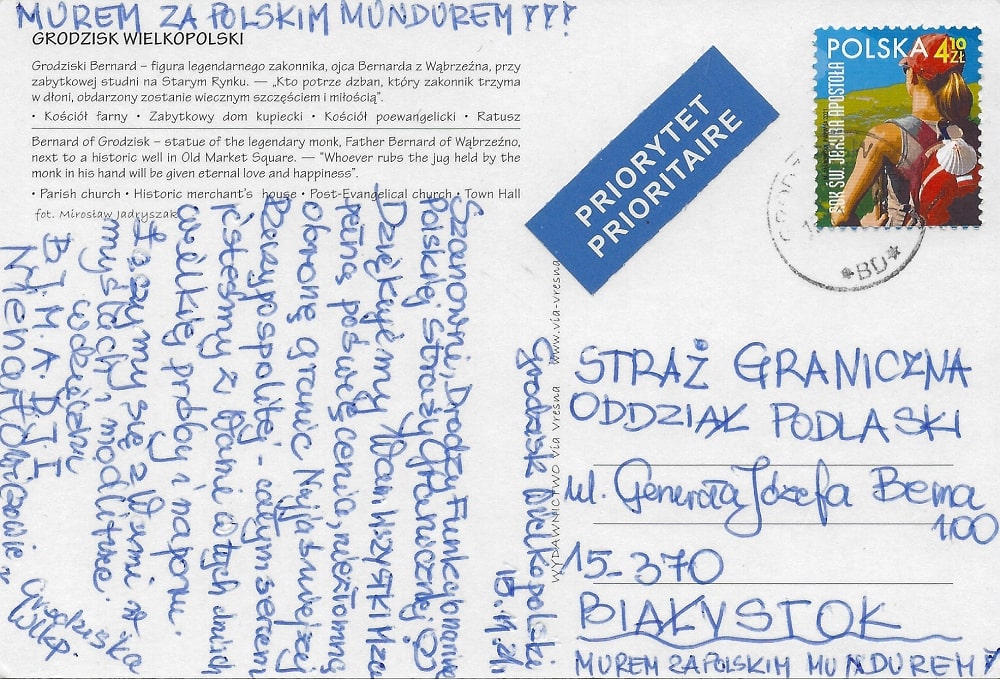 MUREM ZA POLSKIM MUNDUREM!!!
GRODZISK WIELKOPOLSKI
Grodziski Bernard – figura legendarnego zakonnika, ojca Bernarda z Wąbrzeźna, przy
zabytkowej studni na Starym Rynku. — „Kto potrze dzban, który zakonnik trzyma
w dłoni, obdarzony zostanie wiecznym szczęściem i miłością”.
• Kościół farny • Zabytkowy dom kupiecki • Kościół poewangelicki • Ratusz
Bernard of Grodzisk – statue of the legendary monk, Father Bernard of Wąbrzeźno,
next to a historic well in Old Market Square. — “Whoever rubs the jug held by the
monk in his hand will be given eternal love and happiness”.
• Parish church • Historic merchant's house • Post-Evangelical church • Town Hall
fot. Mirosław Jadryszak
Szanowni, Drodzy Funkcjonariusze
Polskiej Straży Granicznej
Dziękujemy Wam wszystkim za
pełną poświęcenia, niezłomną
obronę granic Najjaśniejszej
Rzeczypospolitej - całym sercem
jesteśmy z Wami w tych dniach
wielkiej próby i naporu.
Łączymy się z Wami w
myślach, modlitwie.
wdzięczni
B.J.M.A.D.J.I
Grodziska
Wlkp.
Grodzisk Wielkopolski
15.11.21r
WYDAWNICTWO Via Vresna www.via-vresna
PRIORYTET
PRIORITAIRE
POLSKA 4,10 ZŁ
ROK ŚW. JAKUBA APOSTOŁA
*BD*
STRAŻ GRANICZNA
ODDZIAŁ PODLASKI
ul. Generała Józefa Bema
100
15-370
BIAŁYSTOK
MUREM ZA POLSKIM MUNDUREM!